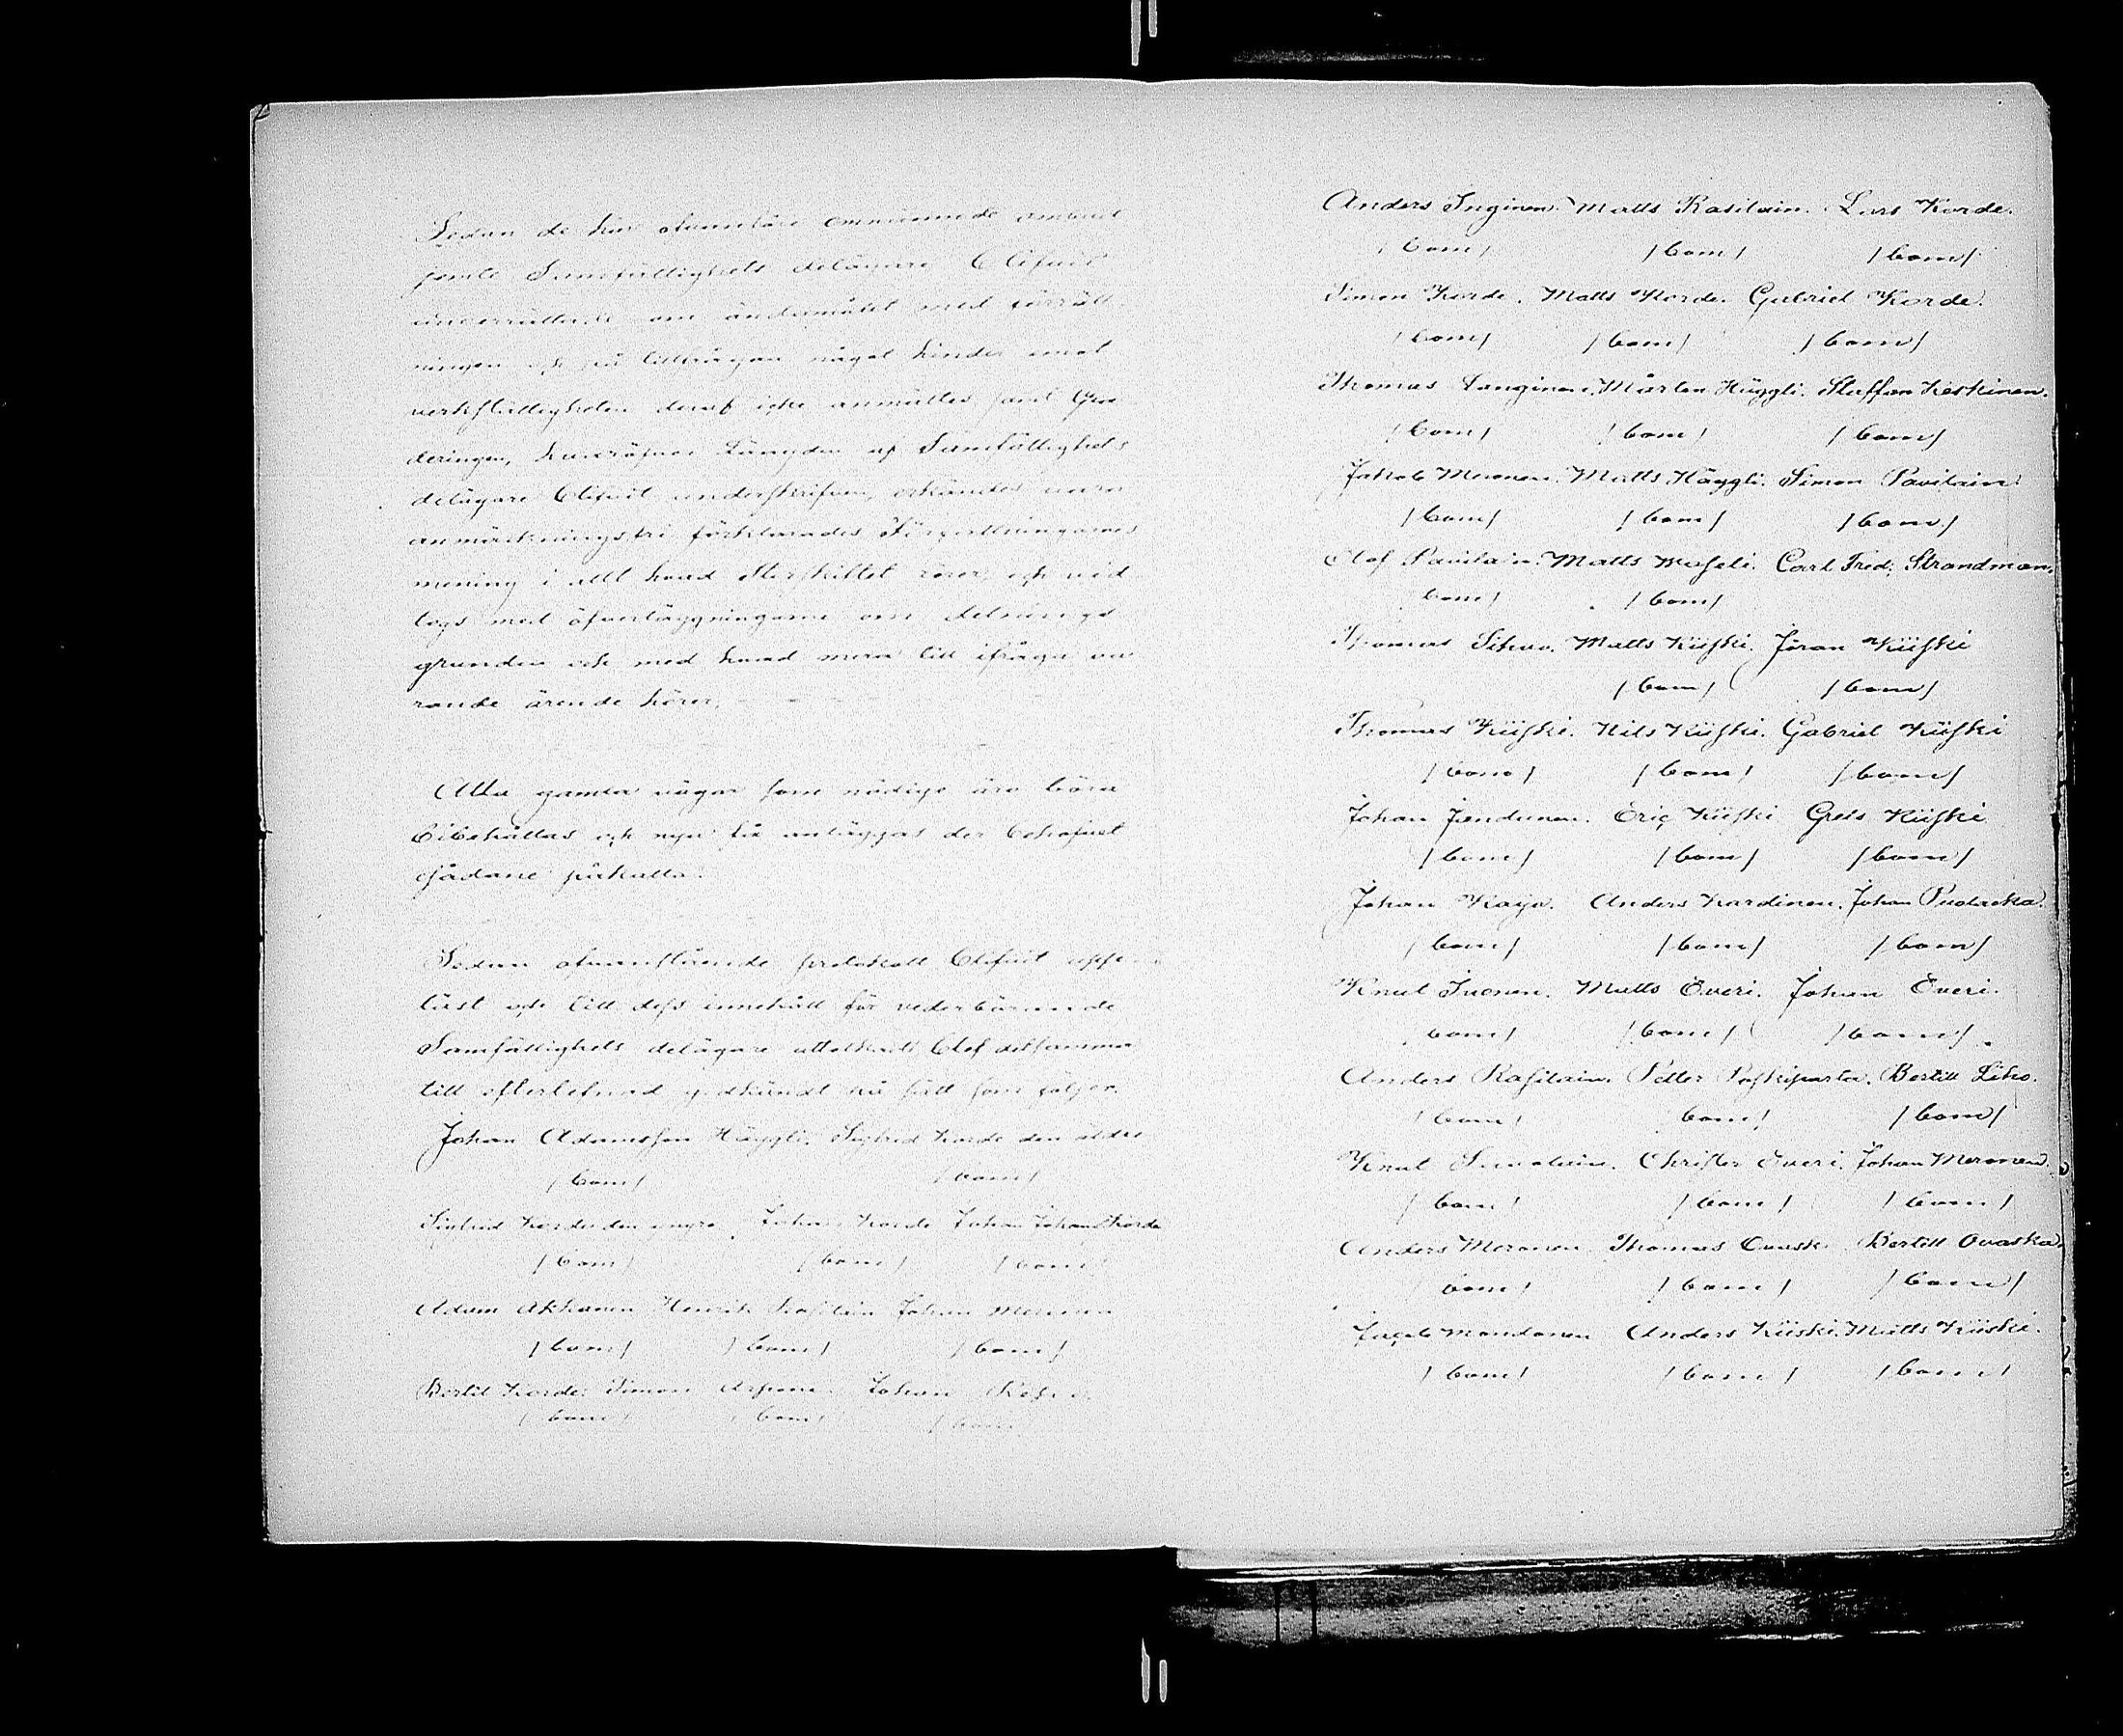 Sedan de här ofvanföre omnämnde ombud
jemte Samfällighets delägare blifvit
underrättade om ändamålet med förrätt-
ningen och på tillfrågan något hinder emot
verkställigheten deraf icke anmältes samt Gra-
deringen, hvaröfver Längden af Samfällighets
delägare blifvit underskrifven, erkändes vara
anmärkningsfri förklarades Förrättningarnes
mening i allt hvad Storskiftet rörer, och vid
togs med öfverläggningarne om delnings
grunden och med hvad mera till ifråga va
rande ärende hörer,
Alla gamla vägar som nödige äro böra
bibehållas och nya få anläggas der behofvet
sådane påkalla.
Sedan ofvanstående protokoll blifvit upp-
läst och till dess innehåll för vederbörande
Samfällighets delägare uttolkadt blef detsamma
till efterlefnad godkändt på sätt som följer.
Johan Adamsson Häggli. Sigfrid Korde den äldre
/bom/ /bom/
Sigfrid Korde den yngre Johan Korde Johan Johans: Korde
/bom/ /bom/ /bom/
Adam Akkanen Henrik Rasilain Johan Meronen
/bom/ /bom/ /bom/
Bertil Korde. Simon Johan
/bom/ /bom/ /bom/
Anders Inginen. Matts Rasilain. Lars Korde.
/bom/ /bom/ /bom/
Simon Korde. Matts Korde. Gabriel Korde.
/bom/ /bom/ /bom/
Thomas Langinen. Mårten Häggli. Staffan Keskinen.
/bom/ /bom/ /bom/
Jakob Meronen. Matts Häggli. Simon Pavilain.
/bom/ /bom/ /bom/
Olof Pavilain. Matts Carl Fred: Strandman.
bom/ /bom/
Thomas Sihvo. Matts Kiiski. Jöran Kiiski
/bom/ /bom/
Thomas Kiiski. Nils Kiiski. Gabriel Kiiski
/bom/ /bom/ /bom/
Johan Jendunen. Eric Kiiski Grels Kiiski
/bom/ /bom/ /bom/
Johan Kaijo. Anders Kardinen. Johan
/bom/ /bom/ /bom/
Knut Iivonen. Matts Everi. Johan Everi.
bom/ /bom/ /bom/
Anders Rasilain. Petter Paskiparta. Bertill Liho.
/bom/ bom/ /bom/
Knut Christer Everi. Johan Meronen.
/bom/ /bom/ /bom/
Anders Meronen Thomas Ovaska Bertill Ovaska.
bom/ /bom/ /bom/
Jacob Mondonen Anders Kiiski. Matts Kiiski.
/bom/ /bom/ /bom/